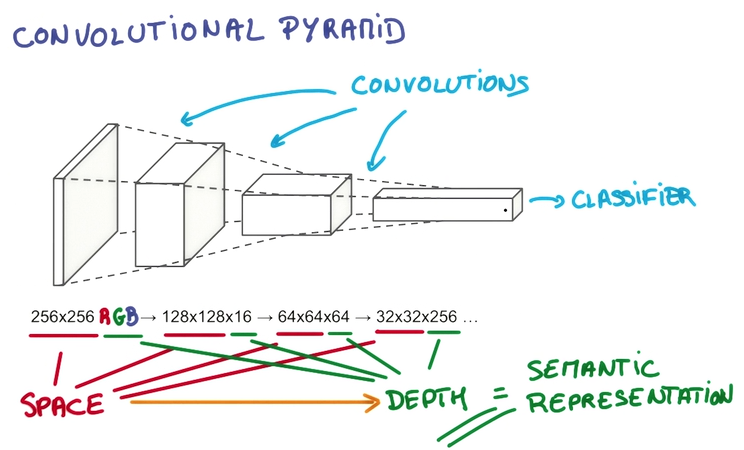 CONVOLUTIONAL PYRAMID
CONVOLUTIONS
CLASSIFIER
256x256 RGB → 128x128x16 → 64x64x64 → 32x32x256 ...
SPACE
DEPTH =
SEMANTIC
REPRESENTATION